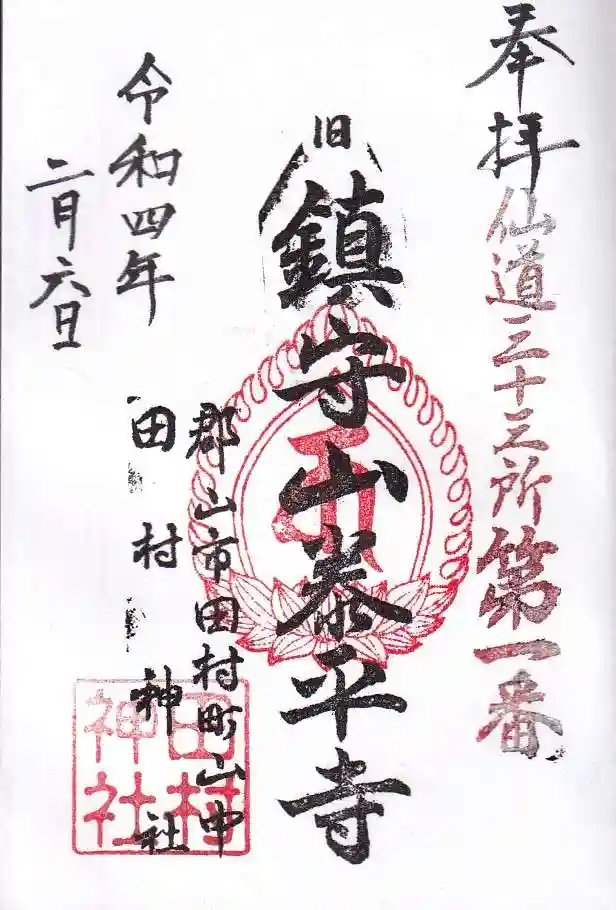 奉拝
仙道三十三所第一番
旧
鎮守山泰平寺
郡山市田村町山中
田村神社
令和四年
二月六日
田村
神社